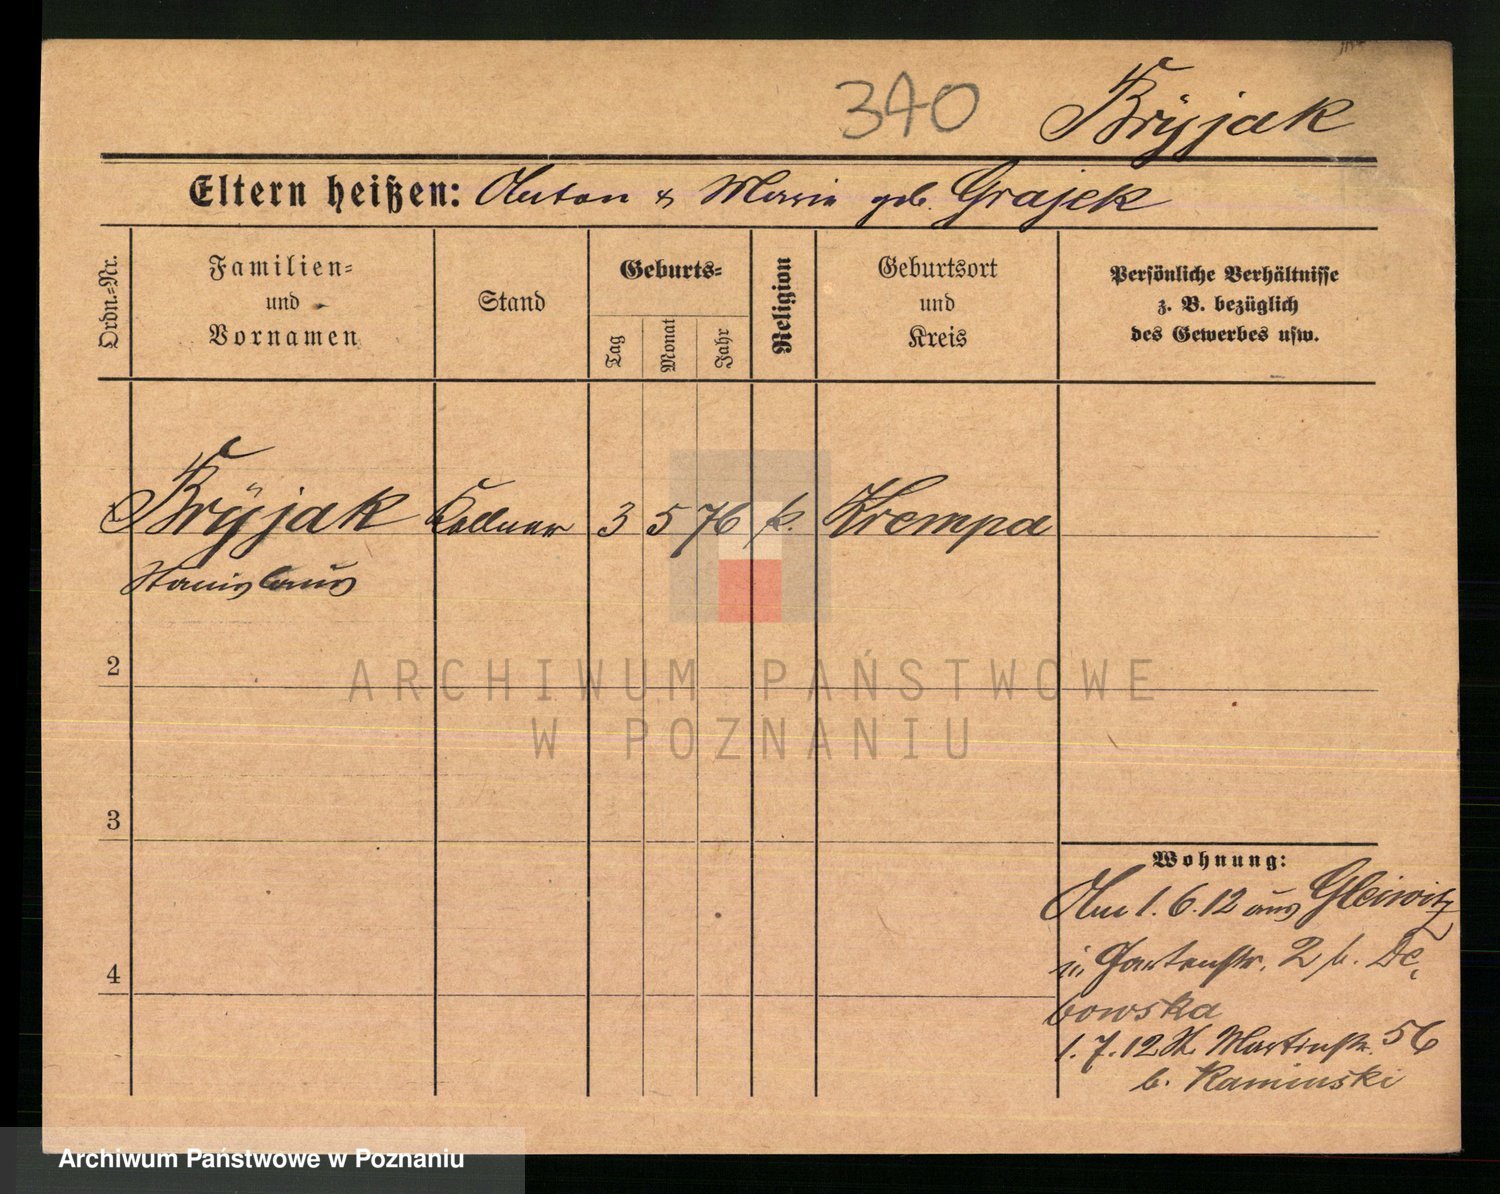 340 Bryjak
Eltern heißen: Anton & Marie geb. Grajek
Ordn.-Nr.
Familien=
und
Vornamen
Stand
Geburts=
Tag
Monat
Jahr
Religion
Geburtsort
und
Kreis
Persönliche Verhältnisse
z. B. bezüglich
des Gewerbes usw.
Bryjak Kellner 3 5 76 k. Krempa
Stanislaus
2
3
4
Wohnung:
Am 1.6.12 aus Gleiwitz
in Gartenstr. 2 b. De-
bowska
1.7.12 St. Martinstr. 56
b. Kaminski
ARCHIWUM PAŃSTWOWE
W POZNANIU
Archiwum Państwowe w Poznaniu